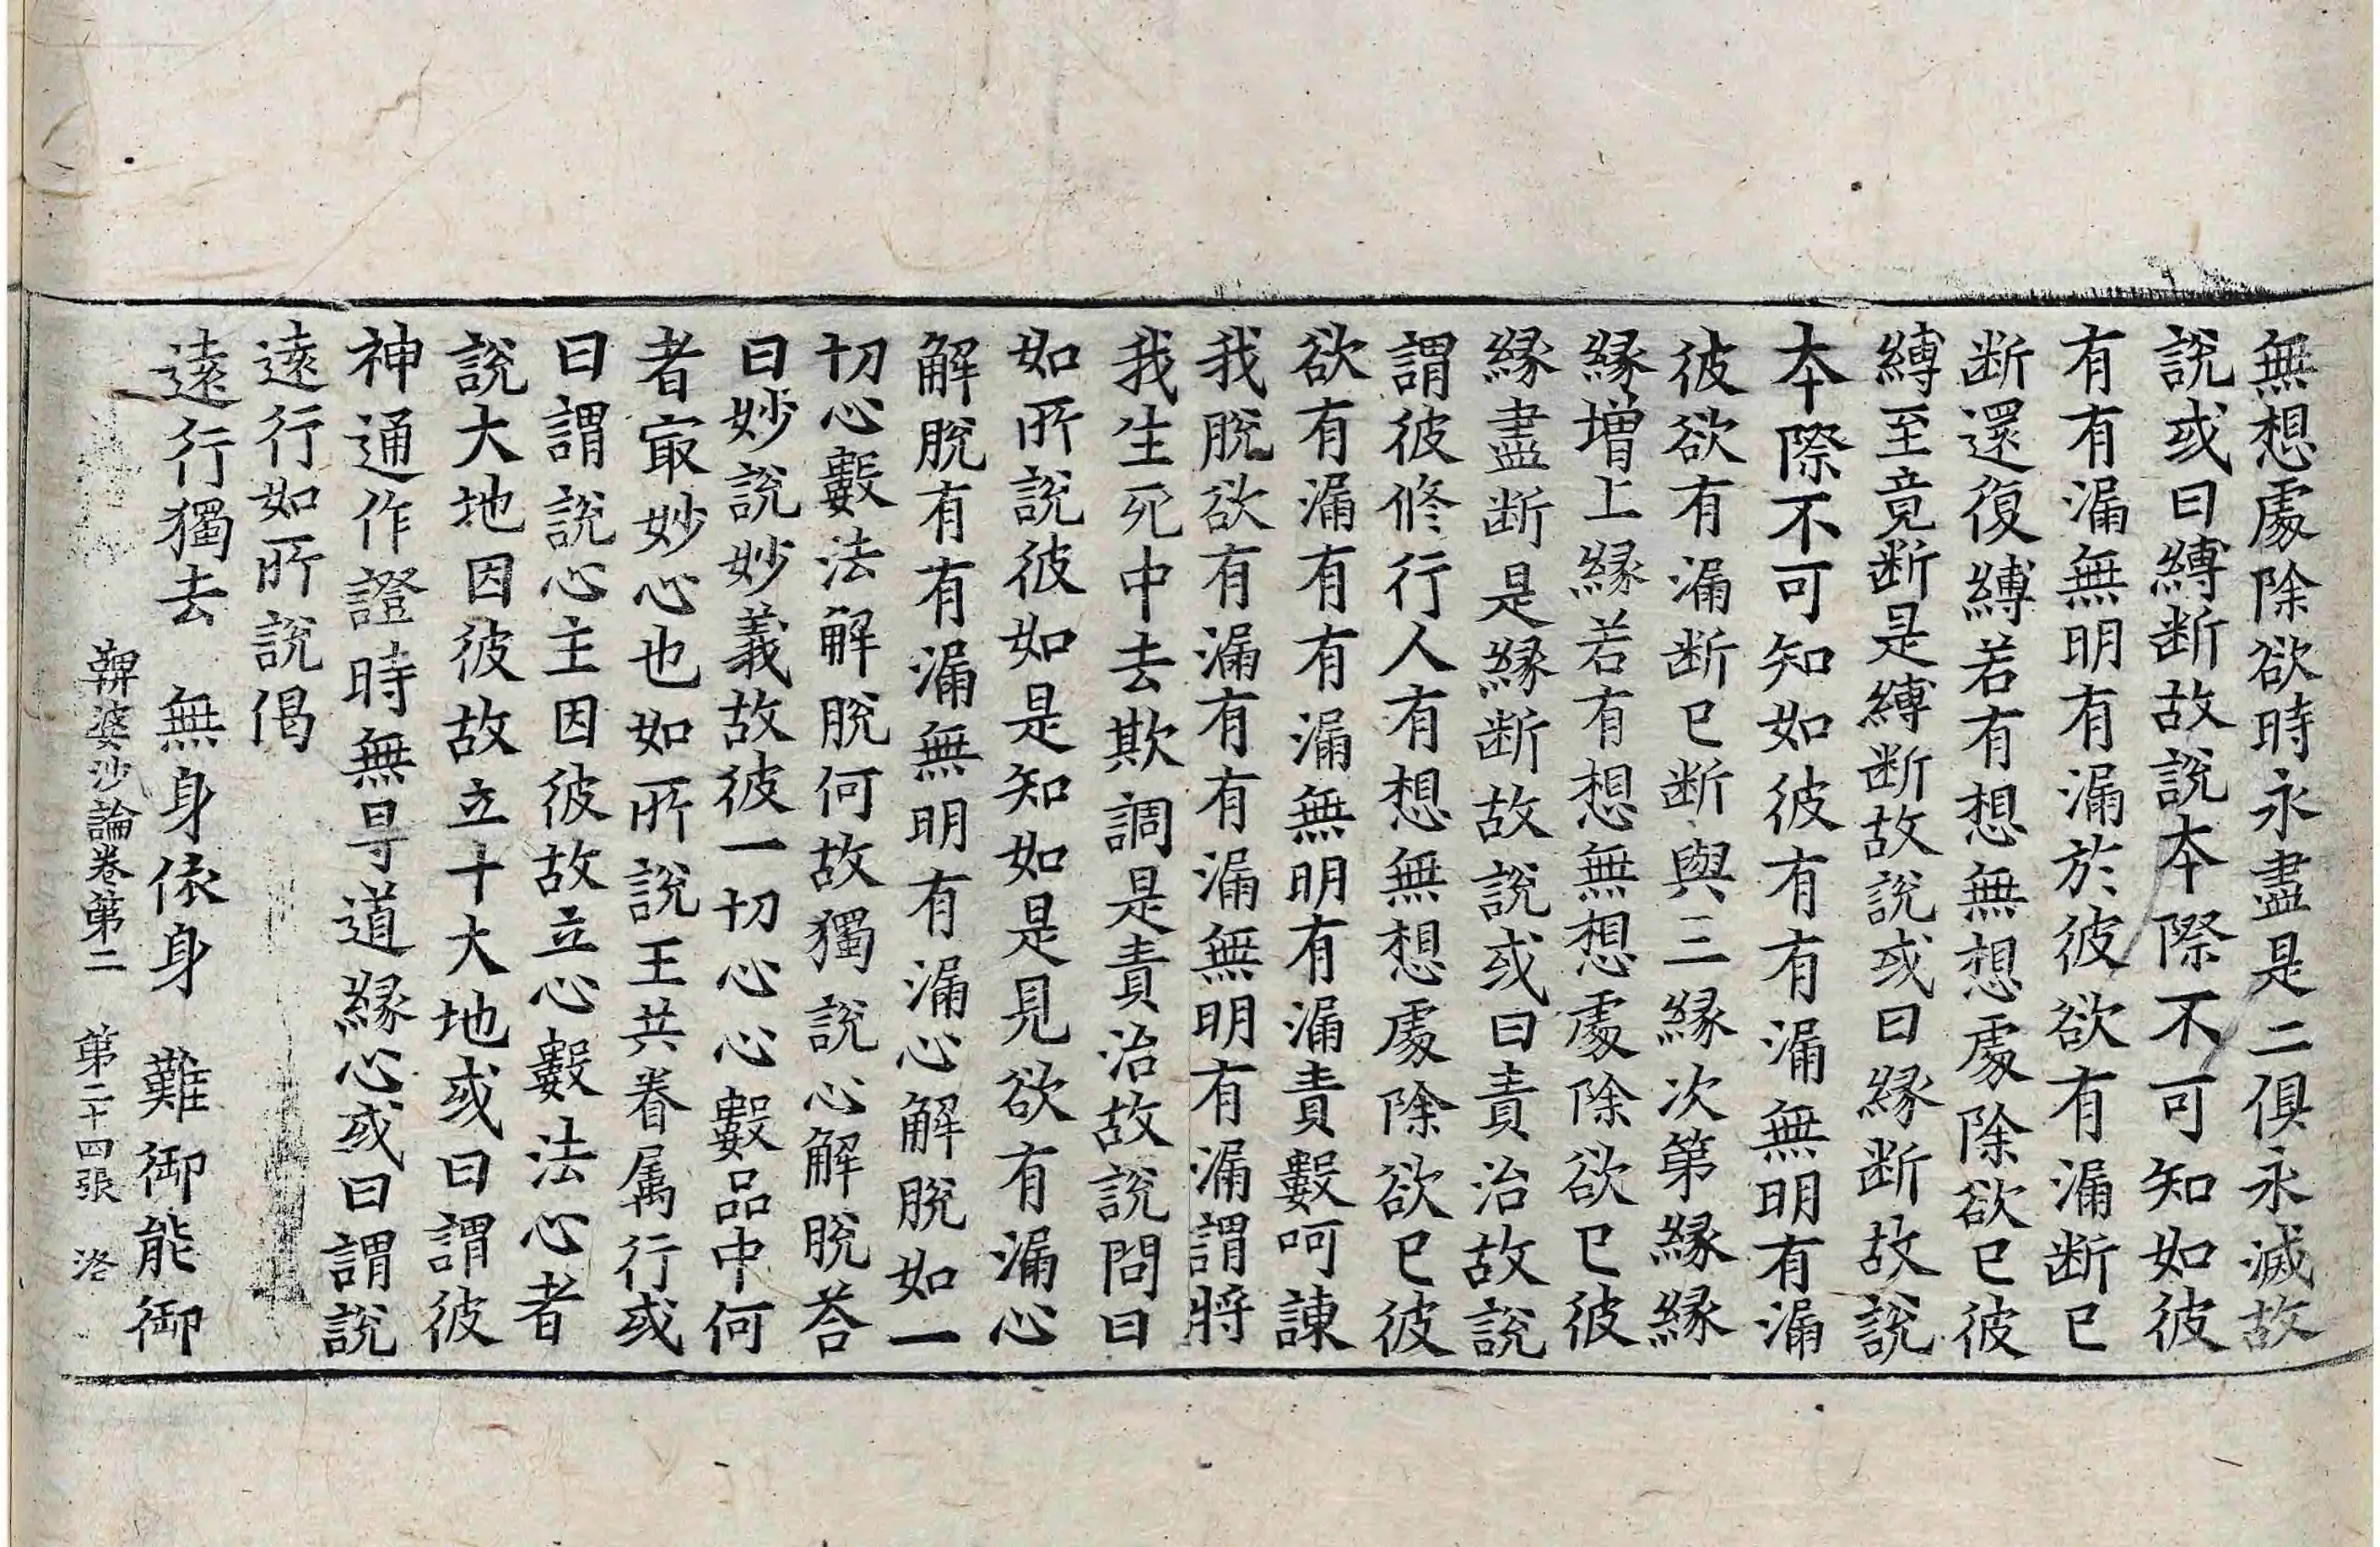 無想處除欲時永盡是二俱永滅故
說或曰縛断故說本際不可知如彼
有有漏無明有漏於彼欲有漏断已
断還復縛若有想無想處除欲已彼
縛至竟断是縛断故說或曰縁断故說
本際不可知如彼有有漏無明有漏
彼欲有漏断已断與三縁次第縁縁
縁增上縁若有想無想處除欲已彼
縁盡断是縁断故說或曰責治故說
謂彼修行人有想無想處除欲已彼
欲有漏有有漏無明有漏責數呵諫
我脫欲有漏有有漏無明有漏謂將
我生死中去欺調是責治故說問曰
如所說彼如是知如是見欲有漏心
解脫有有漏無明有漏心解脫如一
切心數法解脫何故獨說心解脫荅
曰妙說妙義故彼一切心心數品中何
者㝡妙心也如所說王共眷属行或
曰謂說心主因彼故立心數法心者
說大地因彼故立十大地或曰謂彼
神通作證時無㝵道縁心或曰謂說
遠行如所說偈
遠行獨去　無身依身　難御能御
鞞婆沙論卷第二　第二十四張　洛